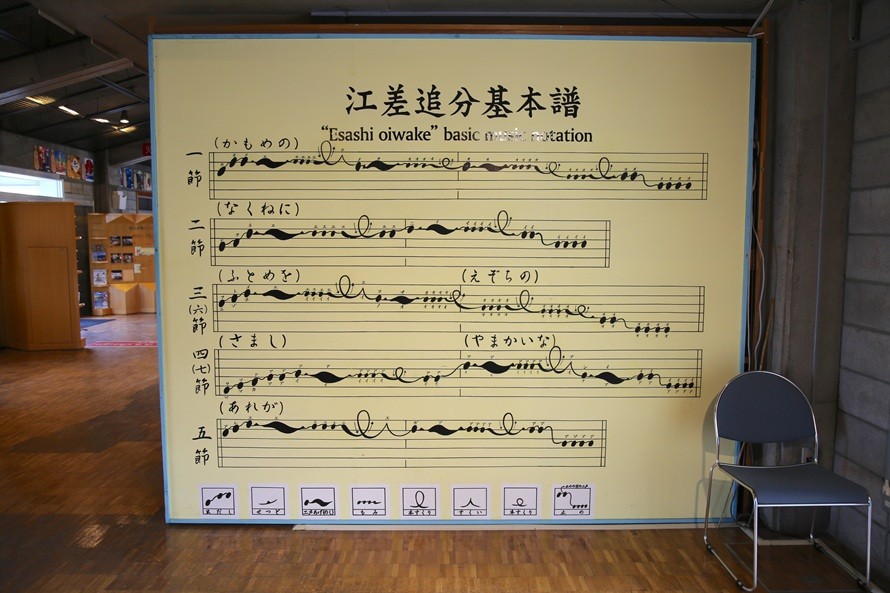 江差追分基本譜
"Esashi oiwake" basic music notation
一節
(かもめの)
二節
(なくねに)
三(六)節
(ふとめを) (えぞちの)
四(七)節
(さまし) (やまかいな)
五節
(あれが)
せつど
もみ
本すくり
すくい
止め